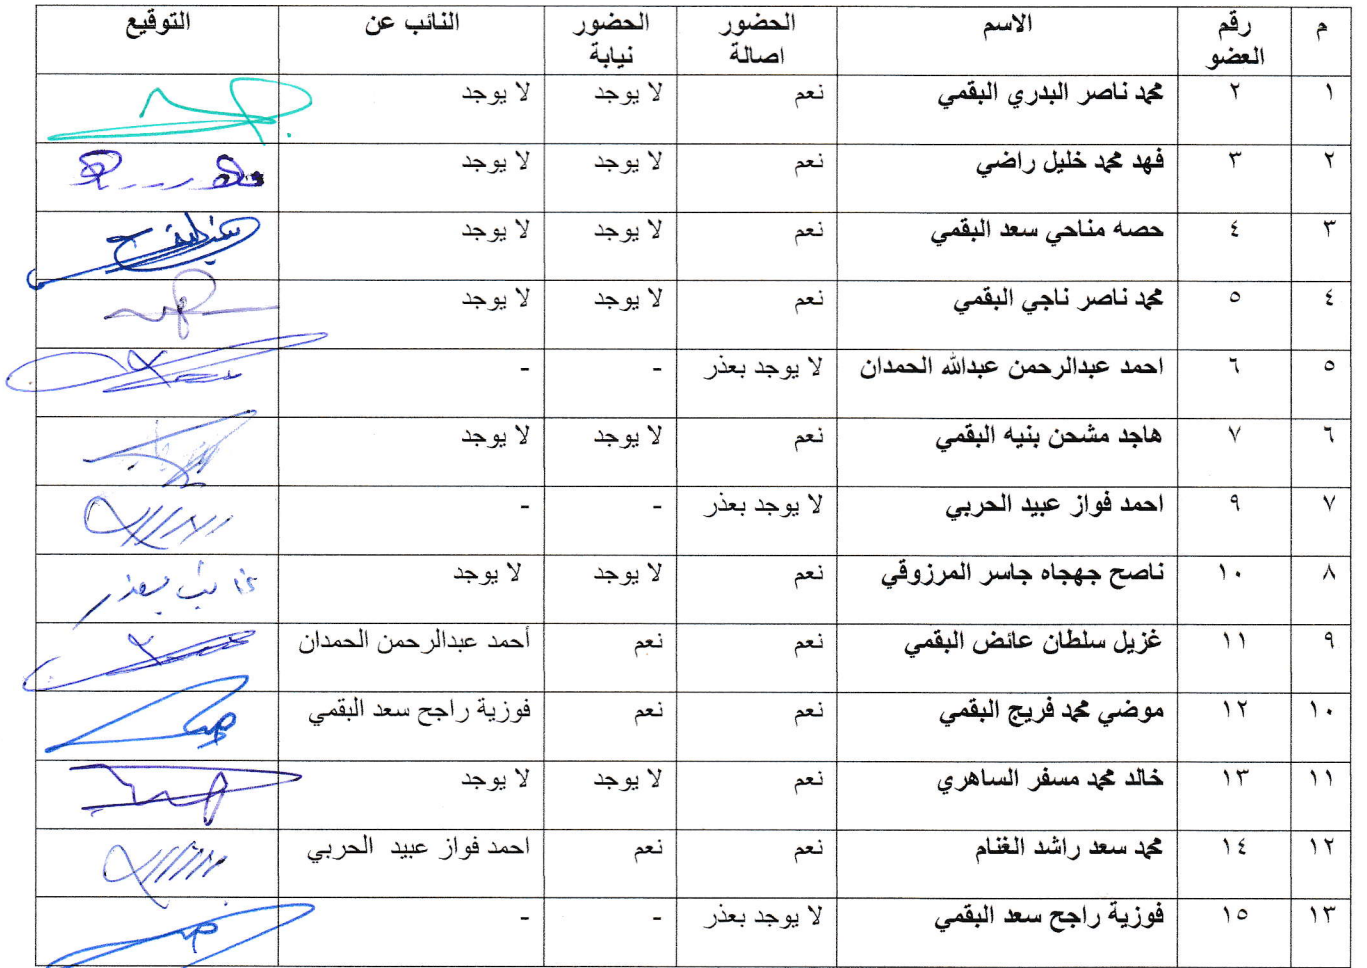 م رقم العضو الاسم الحضور اصالة الحضور نيابة النائب عن التوقيع
١ ٢ محمد ناصر البدري البقمي نعم لا يوجد لا يوجد
٢ ٣ فهد محمد خليل راضي نعم لا يوجد لا يوجد
٣ ٤ حصه مناحي سعد البقمي نعم لا يوجد لا يوجد
٤ ٥ محمد ناصر ناجي البقمي نعم لا يوجد لا يوجد
٥ ٦ احمد عبدالرحمن عبدالله الحمدان لا يوجد بعذر - -
٦ ٧ هاجد مشحن بنيه البقمي نعم لا يوجد لا يوجد
٧ ٩ احمد فواز عبيد الحربي لا يوجد بعذر - -
٨ ١٠ ناصح جهجاه جاسر المرزوقي نعم لا يوجد لا يوجد غائب بعذر
٩ ١١ غزيل سلطان عائض البقمي نعم نعم أحمد عبدالرحمن الحمدان
١٠ ١٢ موضي محمد فريج البقمي نعم نعم فوزية راجح سعد البقمي
١١ ١٣ خالد محمد مسفر الساهري نعم لا يوجد لا يوجد
١٢ ١٤ محمد سعد راشد الغنام نعم نعم احمد فواز عبيد الحربي
١٣ ١٥ فوزية راجح سعد البقمي لا يوجد بعذر - -